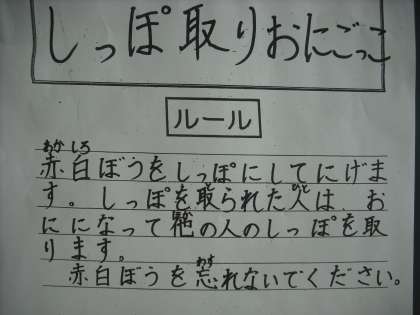 しっぽ取りおにごっこ
ルール
あか しろ
赤白ぼうをしっぽにしてにげま
す。しっぽを取られた人は、お
ににになって他の人のしっぽを取
ります。
わす
赤白ぼうを忘れないでください。